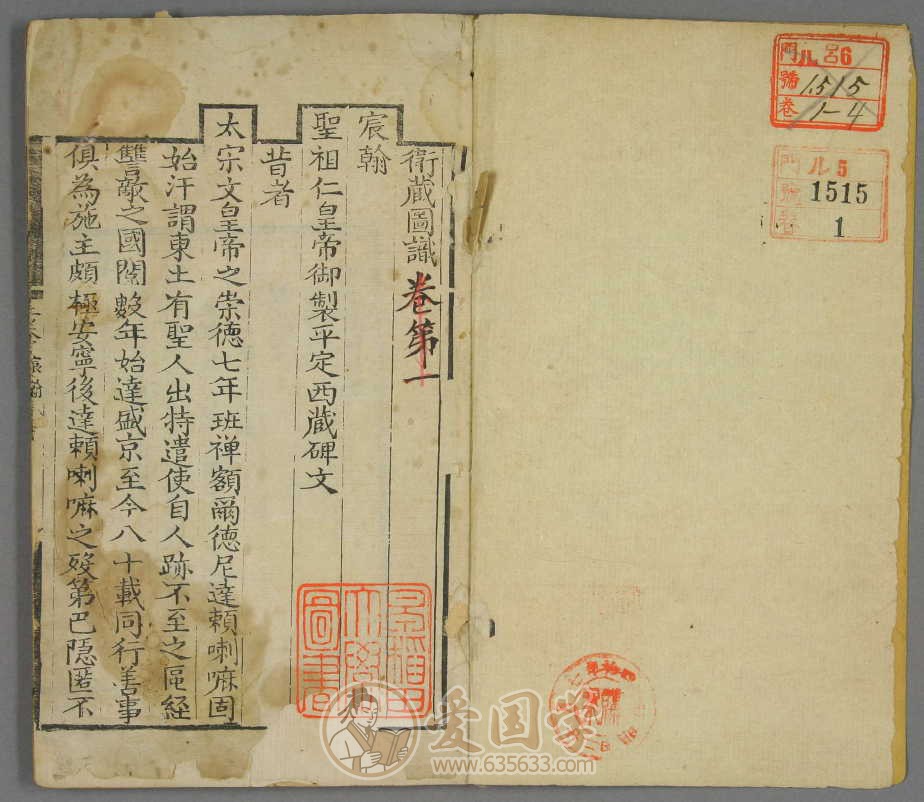 衛藏圖識 卷第一
宸翰
聖祖仁皇帝御製平定西藏碑文
昔者
太宗文皇帝之崇德七年班禪額爾德尼達賴喇嘛固
始汗謂東土有聖人出特遣使自人跡不至之區經
讐敵之國閱數年始達盛京至今八十載同行善事
俱為施主頗極安寧後達賴喇嘛之歿第巴隱匿不
門 ル 呂6
號 1515
卷 1-4
門 ル 5
號 1515
卷 1
早稻田
大學
圖書
爱国学
www.635633.com